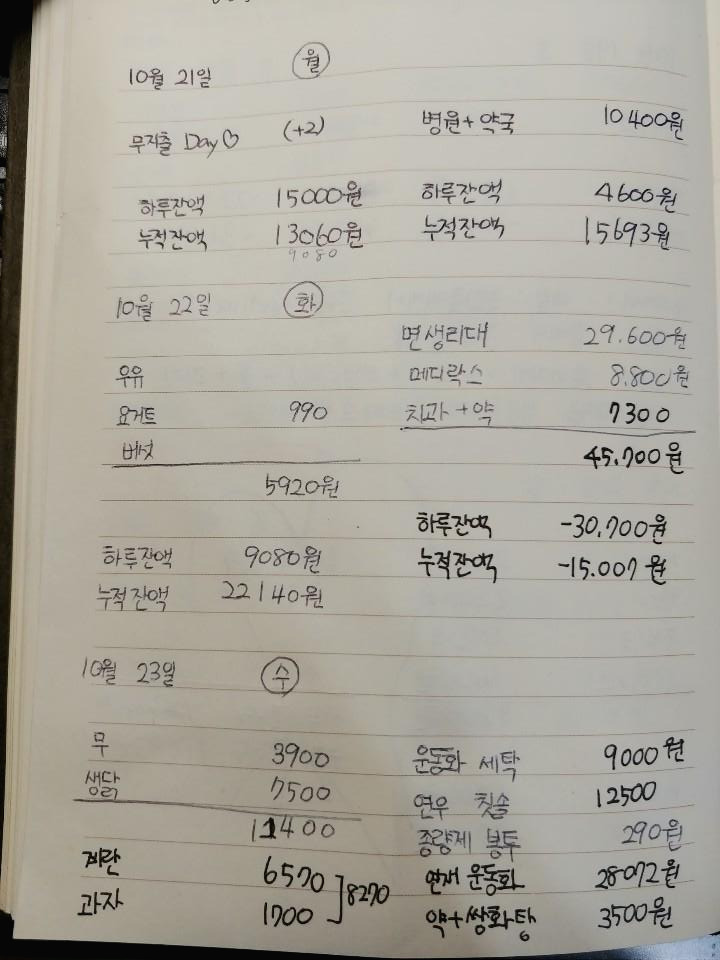 10월 21일 월
무지출 Day♡ (+2) 병원+약국 10400원
하루잔액 15000원 하루잔액 4600원
누적잔액 13060원 누적잔액 15693원
9080
10월 22일 화
면생리대 29.600원
우유 메디락스 8.800원
요거트 990 치과+약 7300
버섯 45.700원
5920원
하루잔액 -30.700원
하루잔액 9080원 누적잔액 -15.007원
누적잔액 22140원
10월 23일 수
무 3900 운동화 세탁 9000원
생닭 7500 연우 칫솔 12500
11400 종량제 봉투 290원
계란 6570 연재 운동화 28072원
과자 1700 8270 약+쌍화탕 3500원